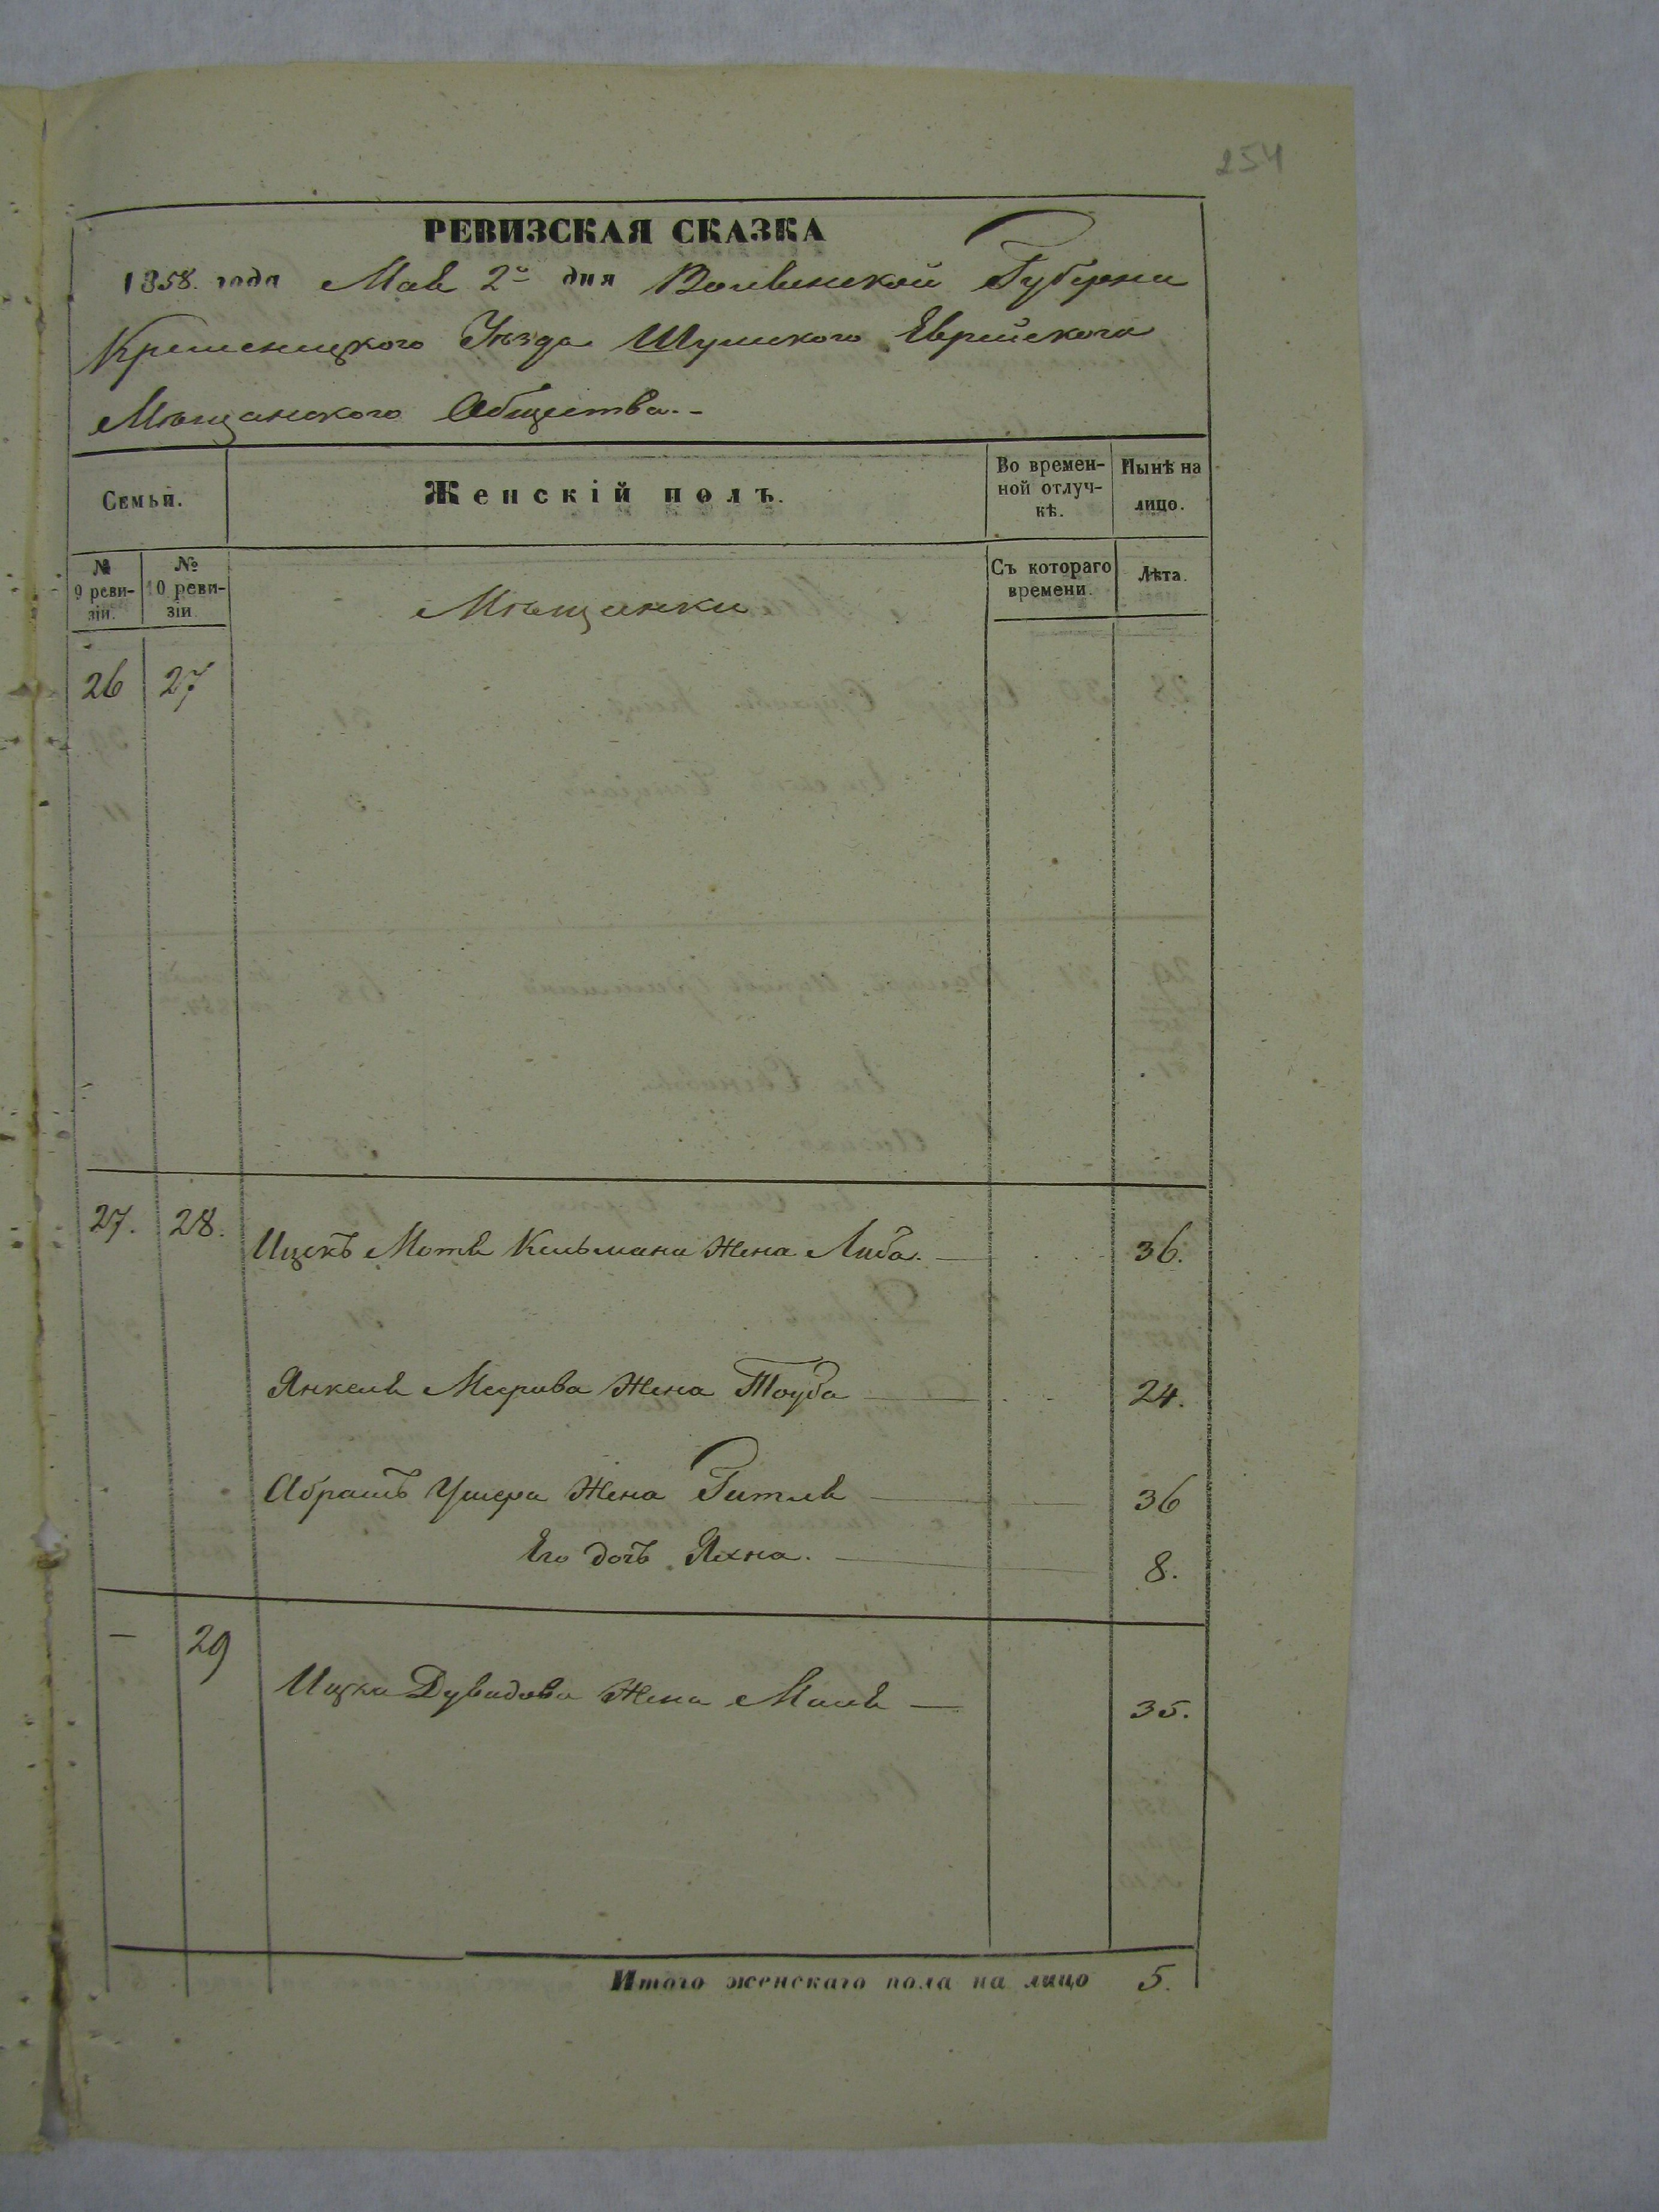 254
РЕВИЗСКАЯ СКАЗКА
1858. года Мая 2го дня Волынской Губернии
Кременецкого Уѣзда Шумского Еврейского
Мѣщанского Общества.-
Семьи.
Женскій полъ.
Во времен-
ной отлуч-
кѣ.
Нынѣ на
лицо.
№
9 реви-
зіи.
№
10 реви-
зіи.
Мѣщанки
Съ котораго
времени.
Лѣта.
26 27
27. 28.
Ицекъ Мотя Кельмана Жена Либа. 36.
Янкеля Меерова Жена Тауба 24.
Абрамъ Ушера Жена Гитля 36
Его дочь Яхна. 8.
— 29
Ицка Дувидова Жена Маля 35.
Итого женскаго пола на лицо 5.